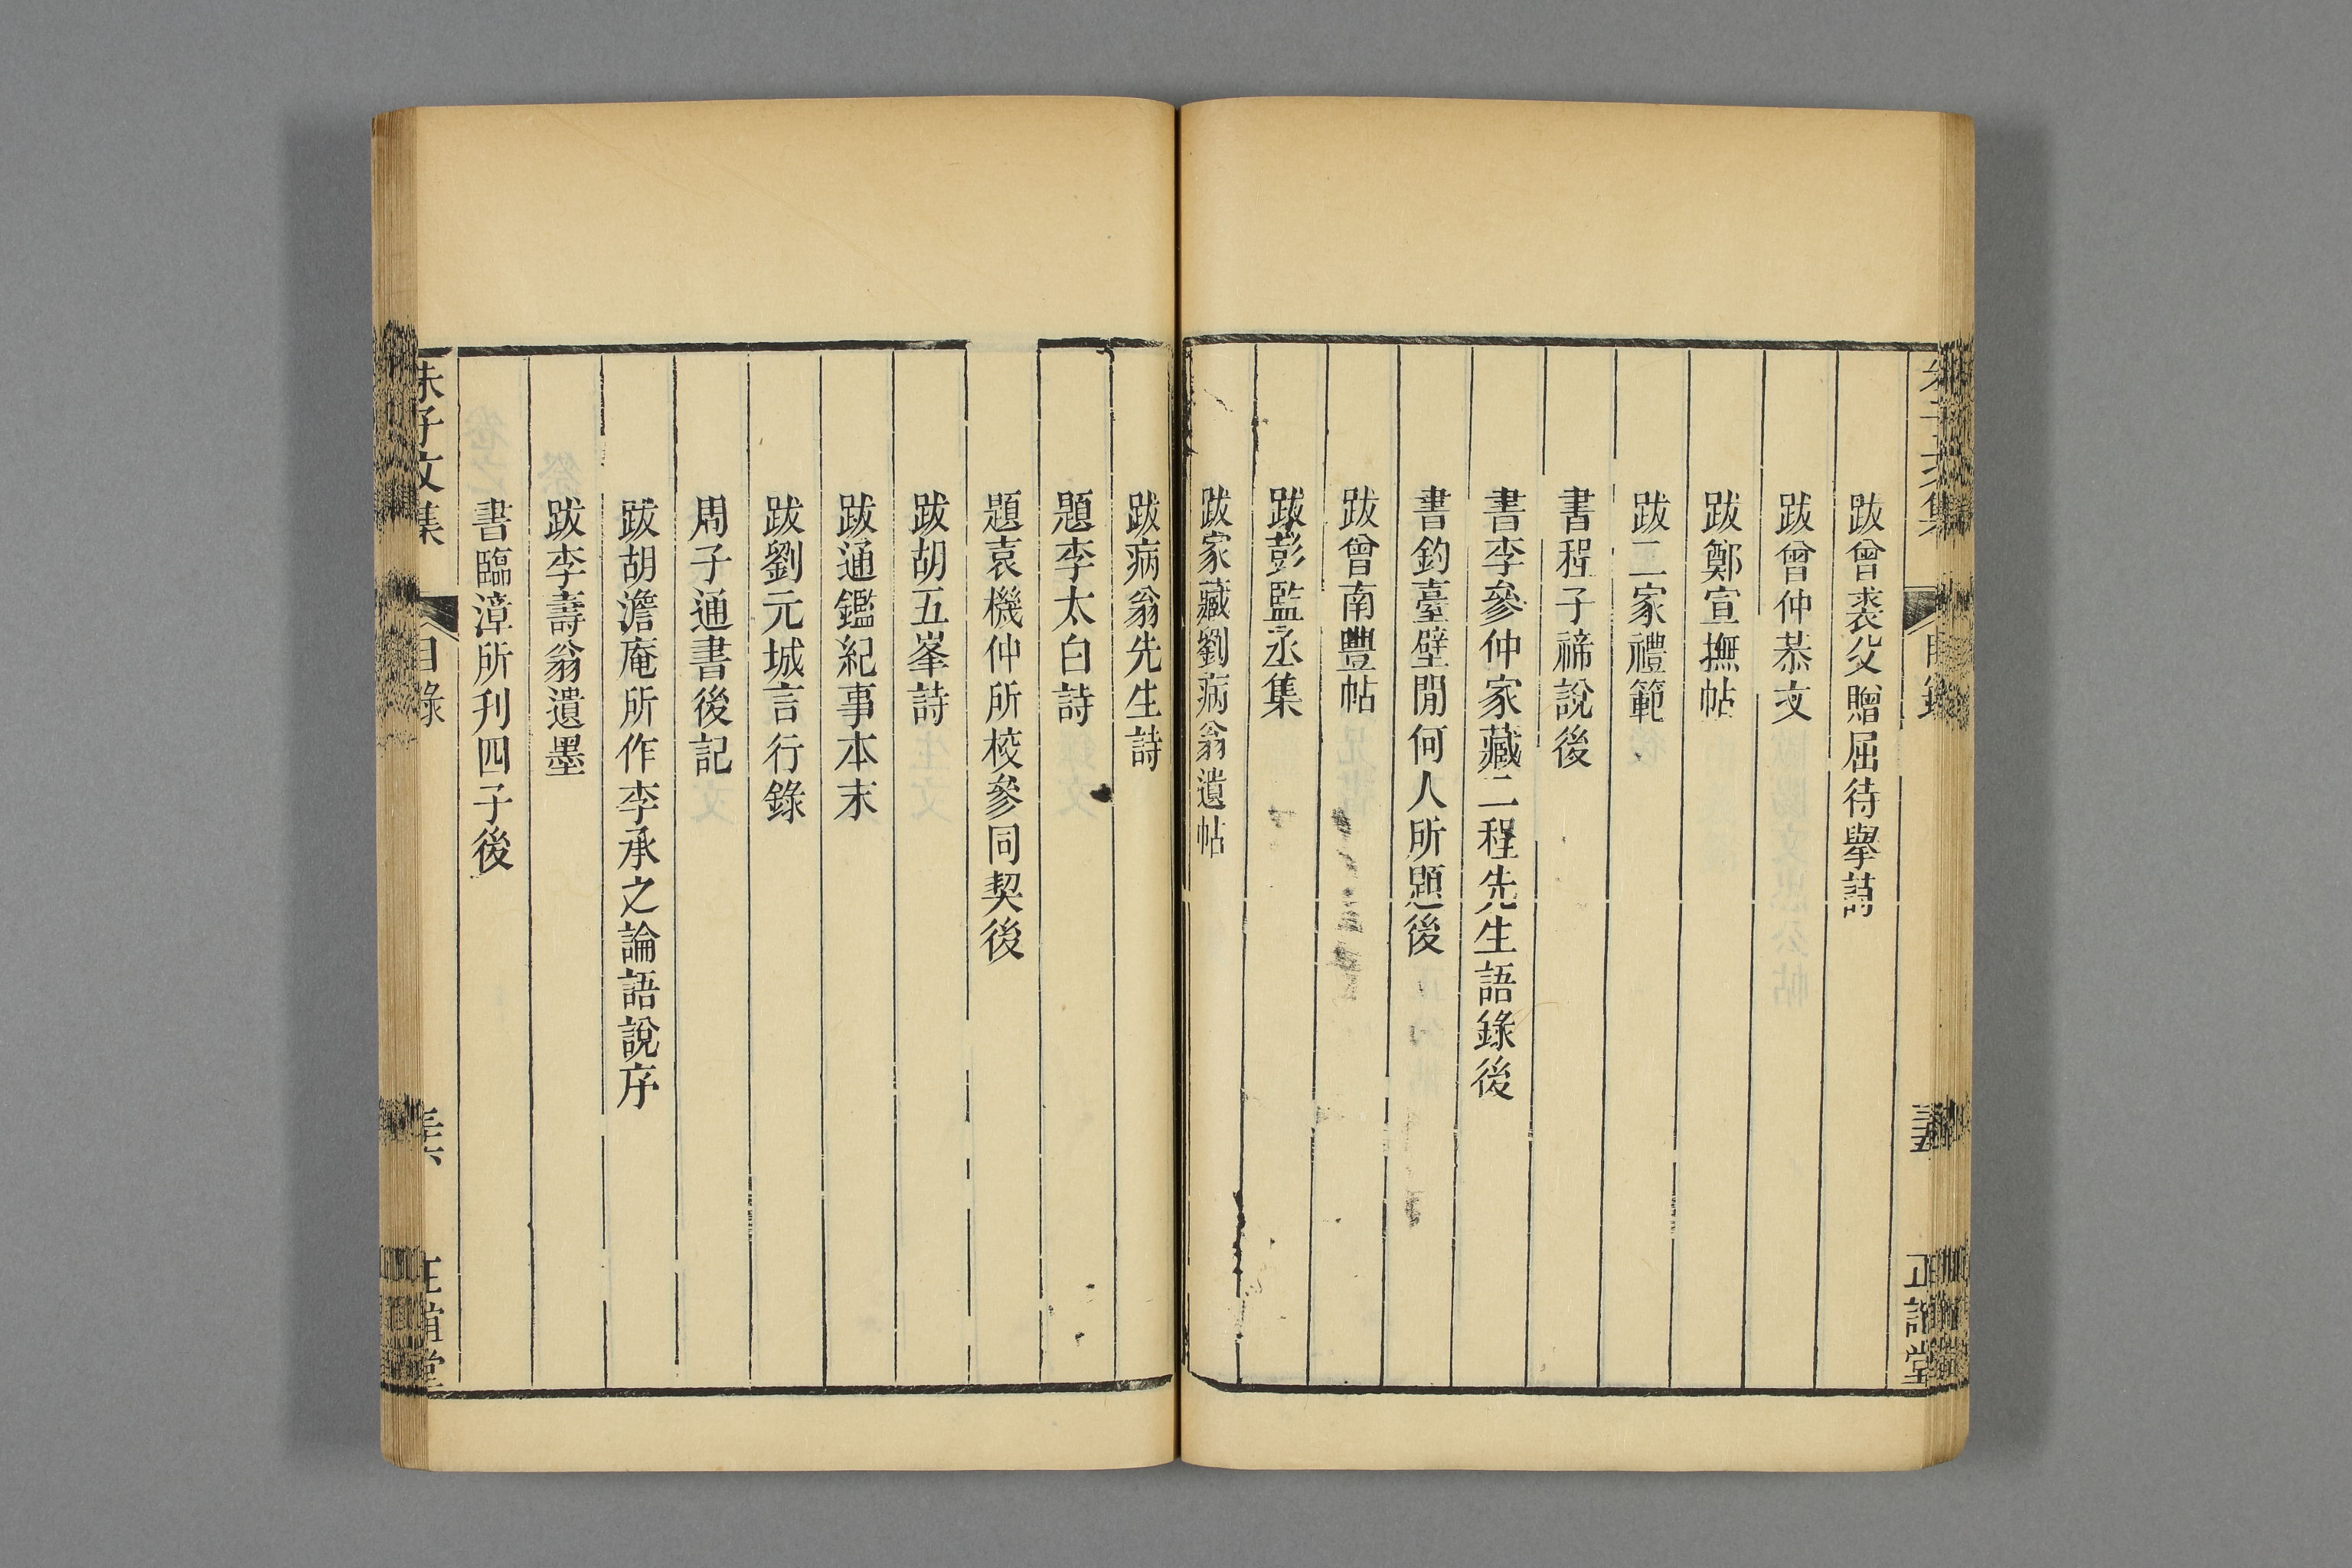 朱子文集 目錄 正誼堂
跋曾裘父贈屈待舉詩
跋曾仲恭文
跋鄭宣撫帖
跋二家禮範
書程子禘說後
書李參仲家藏二程先生語錄後
書釣臺壁閒何人所題後
跋曾南豐帖
跋彭監丞集
跋家藏劉病翁遺帖
跋病翁先生詩
題李太白詩
題袁機仲所校參同契後
跋胡五峯詩
跋通鑑紀事本末
跋劉元城言行錄
周子通書後記
跋胡澹庵所作李承之論語說序
跋李壽翁遺墨
書臨漳所刊四子後
朱子文集 目錄 正誼堂